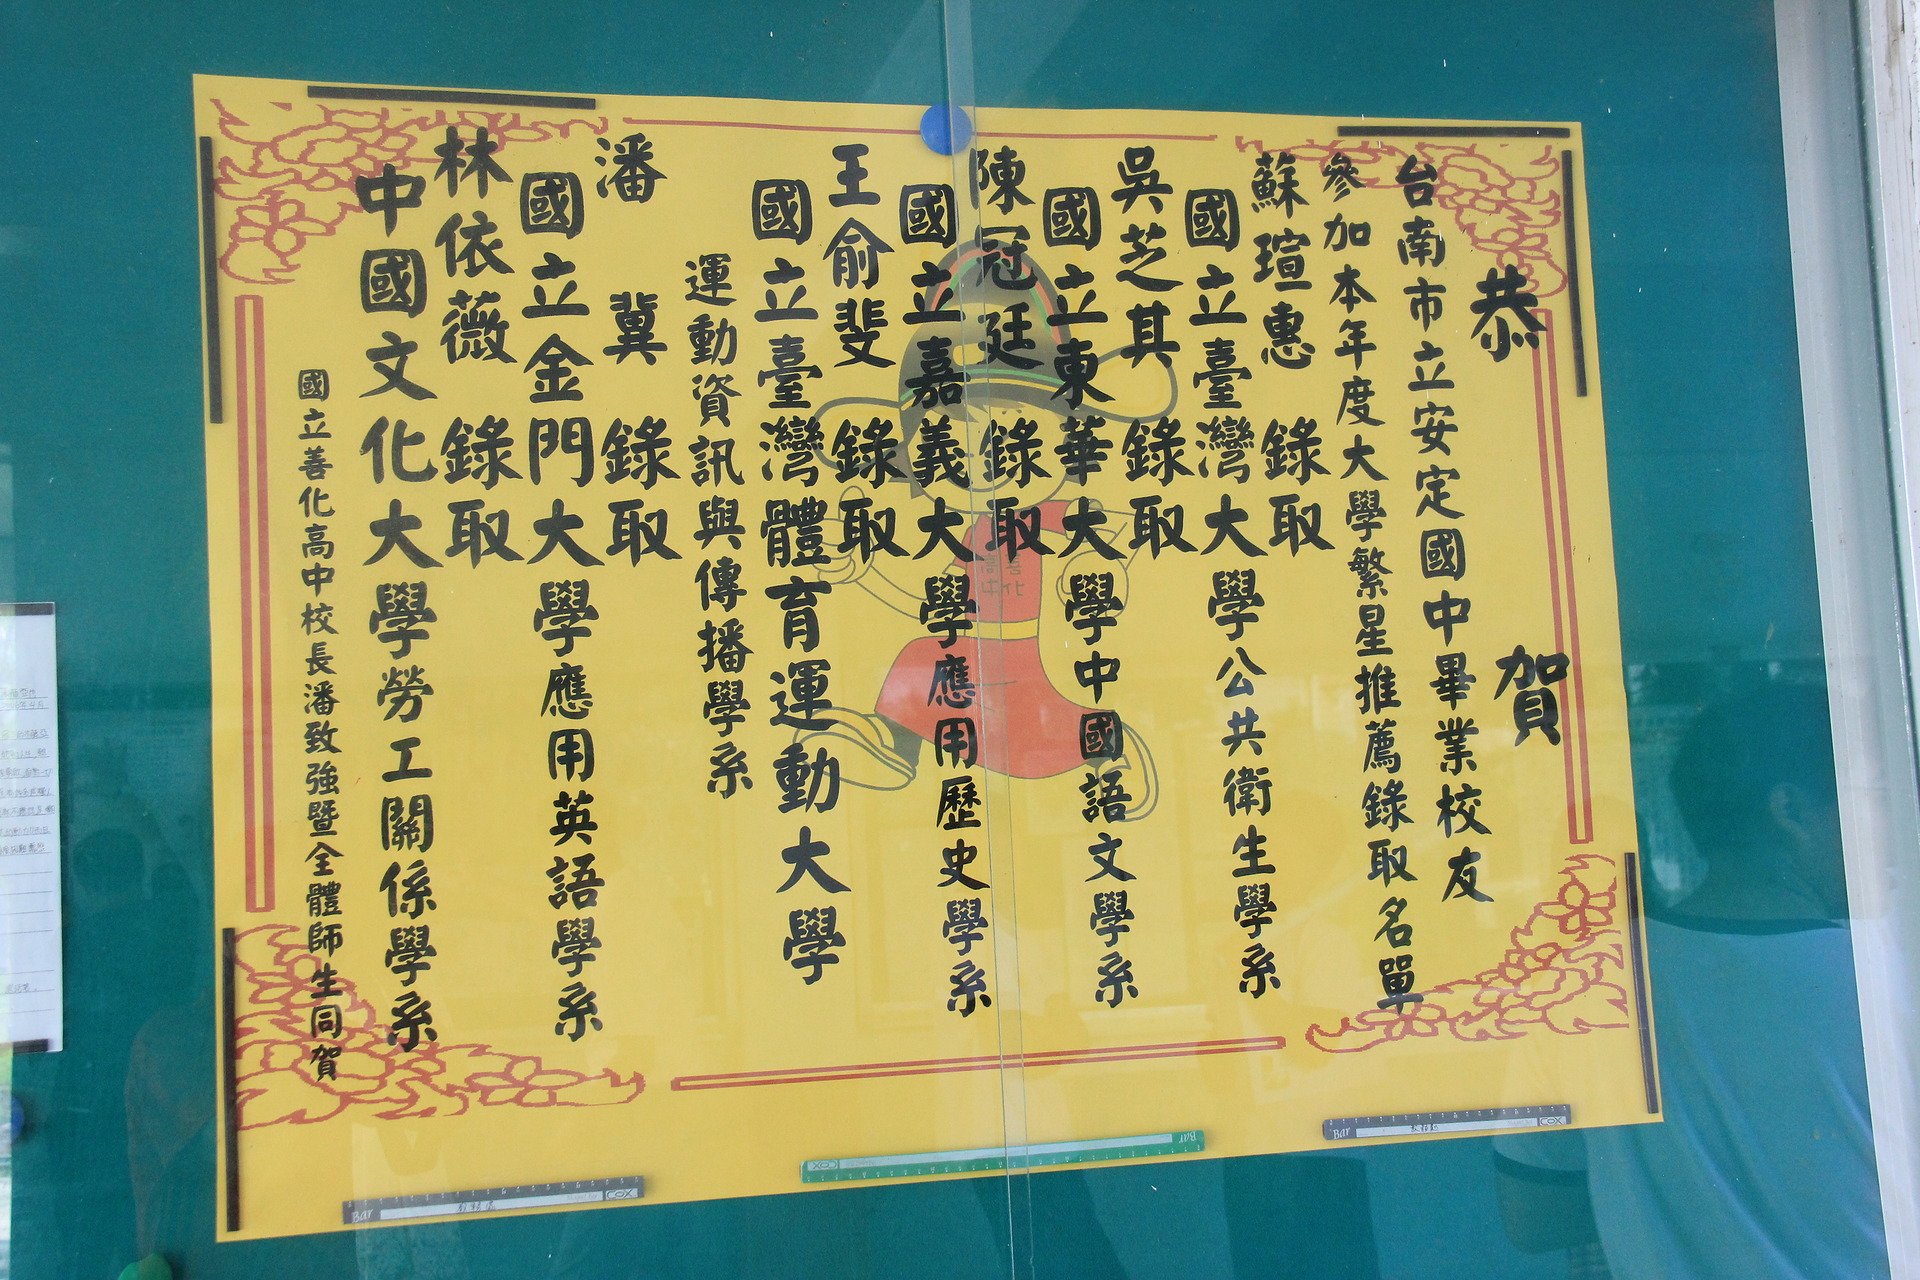 恭賀
台南市立安定國中畢業校友
參加本年度大學繁星推薦錄取名單
蘇瑄惠 錄取
國立臺灣大學公共衛生學系
吳芝其 錄取
國立東華大學中國語文學系
陳冠廷 錄取
國立嘉義大學應用歷史學系
王俞斐 錄取
國立臺灣體育運動大學
運動資訊與傳播學系
潘冀 錄取
國立金門大學應用英語學系
林依薇 錄取
中國文化大學勞工關係學系
國立善化高中校長潘致強暨全體師生同賀
善化
高中
Bar COX
Bar COX
Bar COX